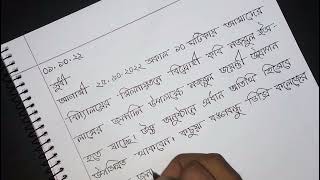 ০৯.১০.২২
সুধী
আগামী ২৫.১০.২০২২ সকাল ১০ ঘটিকায় আমাদের
বিদ্যালয়ের মিলনায়তনে বিদ্রোহী কবি নজরুল ইস-
লামের জন্মদিন উপলক্ষে নজরুল জয়ন্তী উদযাপন
হতে যাচ্ছে। উক্ত অনুষ্ঠানে প্রধান অতিথি হিসেবে
উপস্থিত থাকবেন। কচুয়া বঙ্গবন্ধু ডিগ্রি কলেজের